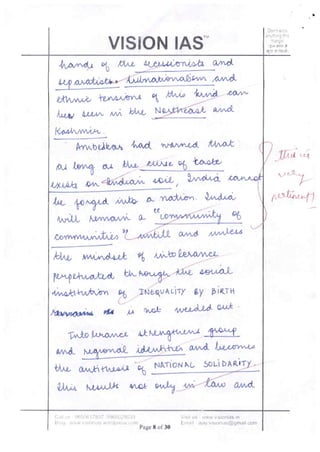 VISION IAS™
Don't write anything this margin
hands of the secessionists and
separatists. Subnationalism and
ethnic tensions of this kind can
be seen in the Northeast and
Kashmir.
Ambedkar had warned that
as long as the curse of caste
exists on Indian soil, India cannot
be forged into a nation. India
will remain a "community of
communities" untill and unless
the mindset of intolerance
perpetuated through the social
institution of INEQUALITY BY BIRTH
remains is not weeded out.
Intolerance strengthens group
and regional identities and becomes
the antithesis of NATIONAL SOLIDARITY.
This results not only in law and
this is
very
pertinent
Page 8 of 30
Visit us : www.visionias.in